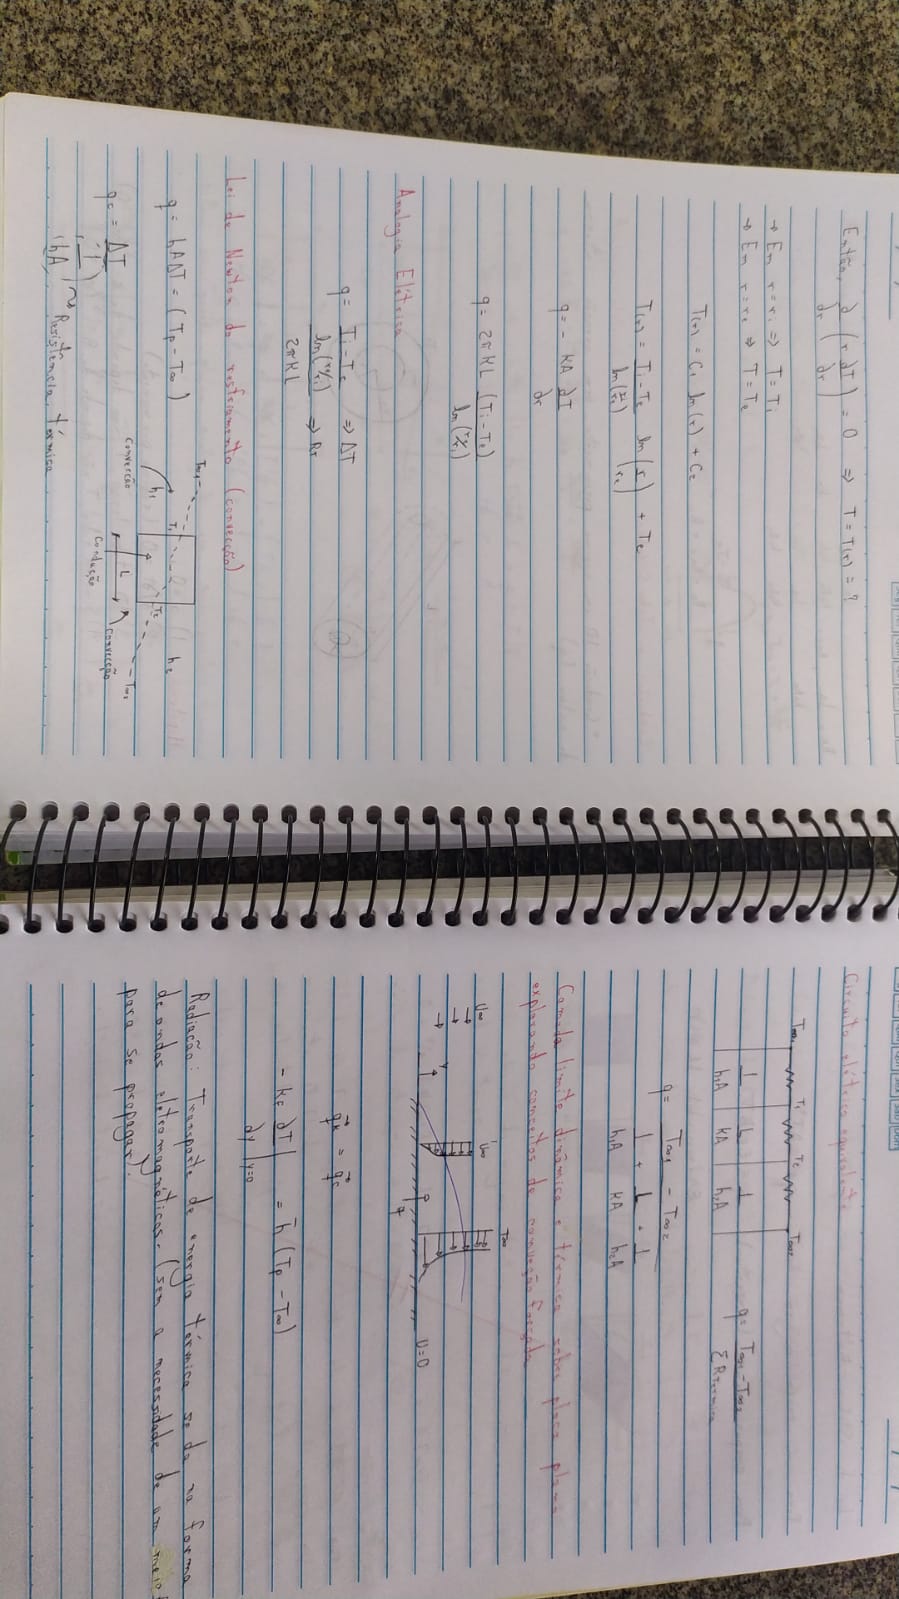 Então, d/dr (r dT/dr) = 0 ⇒ T = T(r) = ?
→ Em r = ri ⇒ T = Ti
→ Em r = re ⇒ T = Te
T(r) = C1 ln(r) + C2
T(r) = Ti - Te / ln(ri/re) ln(r/re) + Te
q = - KA dT/dr
q = 2πKL (Ti - Te) / ln(re/ri)
Analogia Elétrica
q = Ti - Te / ln(re/ri) / 2πKL ⇒ ΔT ⇒ RT
Lei de Newton do resfriamento (convecção)
q = hAΔT = (Tp - T∞)
qc = ΔT / (1/hA) ~> Resistência térmica
T∞1 T1 T2 T∞2
h1 h2
L
Convecção
Condução
Convecção
Circuito elétrico equivalente
T∞1 T1 T2 T∞2
1/h1A L/KA 1/h2A
q = T∞1 - T∞2 / ΣRTérmica
q = T∞1 - T∞2 / 1/h1A + L/KA + 1/h2A
Camada limite dinâmica e térmica sobre placa plana
explorando conceitos de convecção forçada
U∞ U∞ T∞
y
q
U=0
qk = qc
- KF dT/dy |y=0 = h̄ (Tp - T∞)
Radiação: Transporte de energia térmica se da na forma
de ondas eletromagnéticas. (sem a necessidade de um meio
para se propagar).